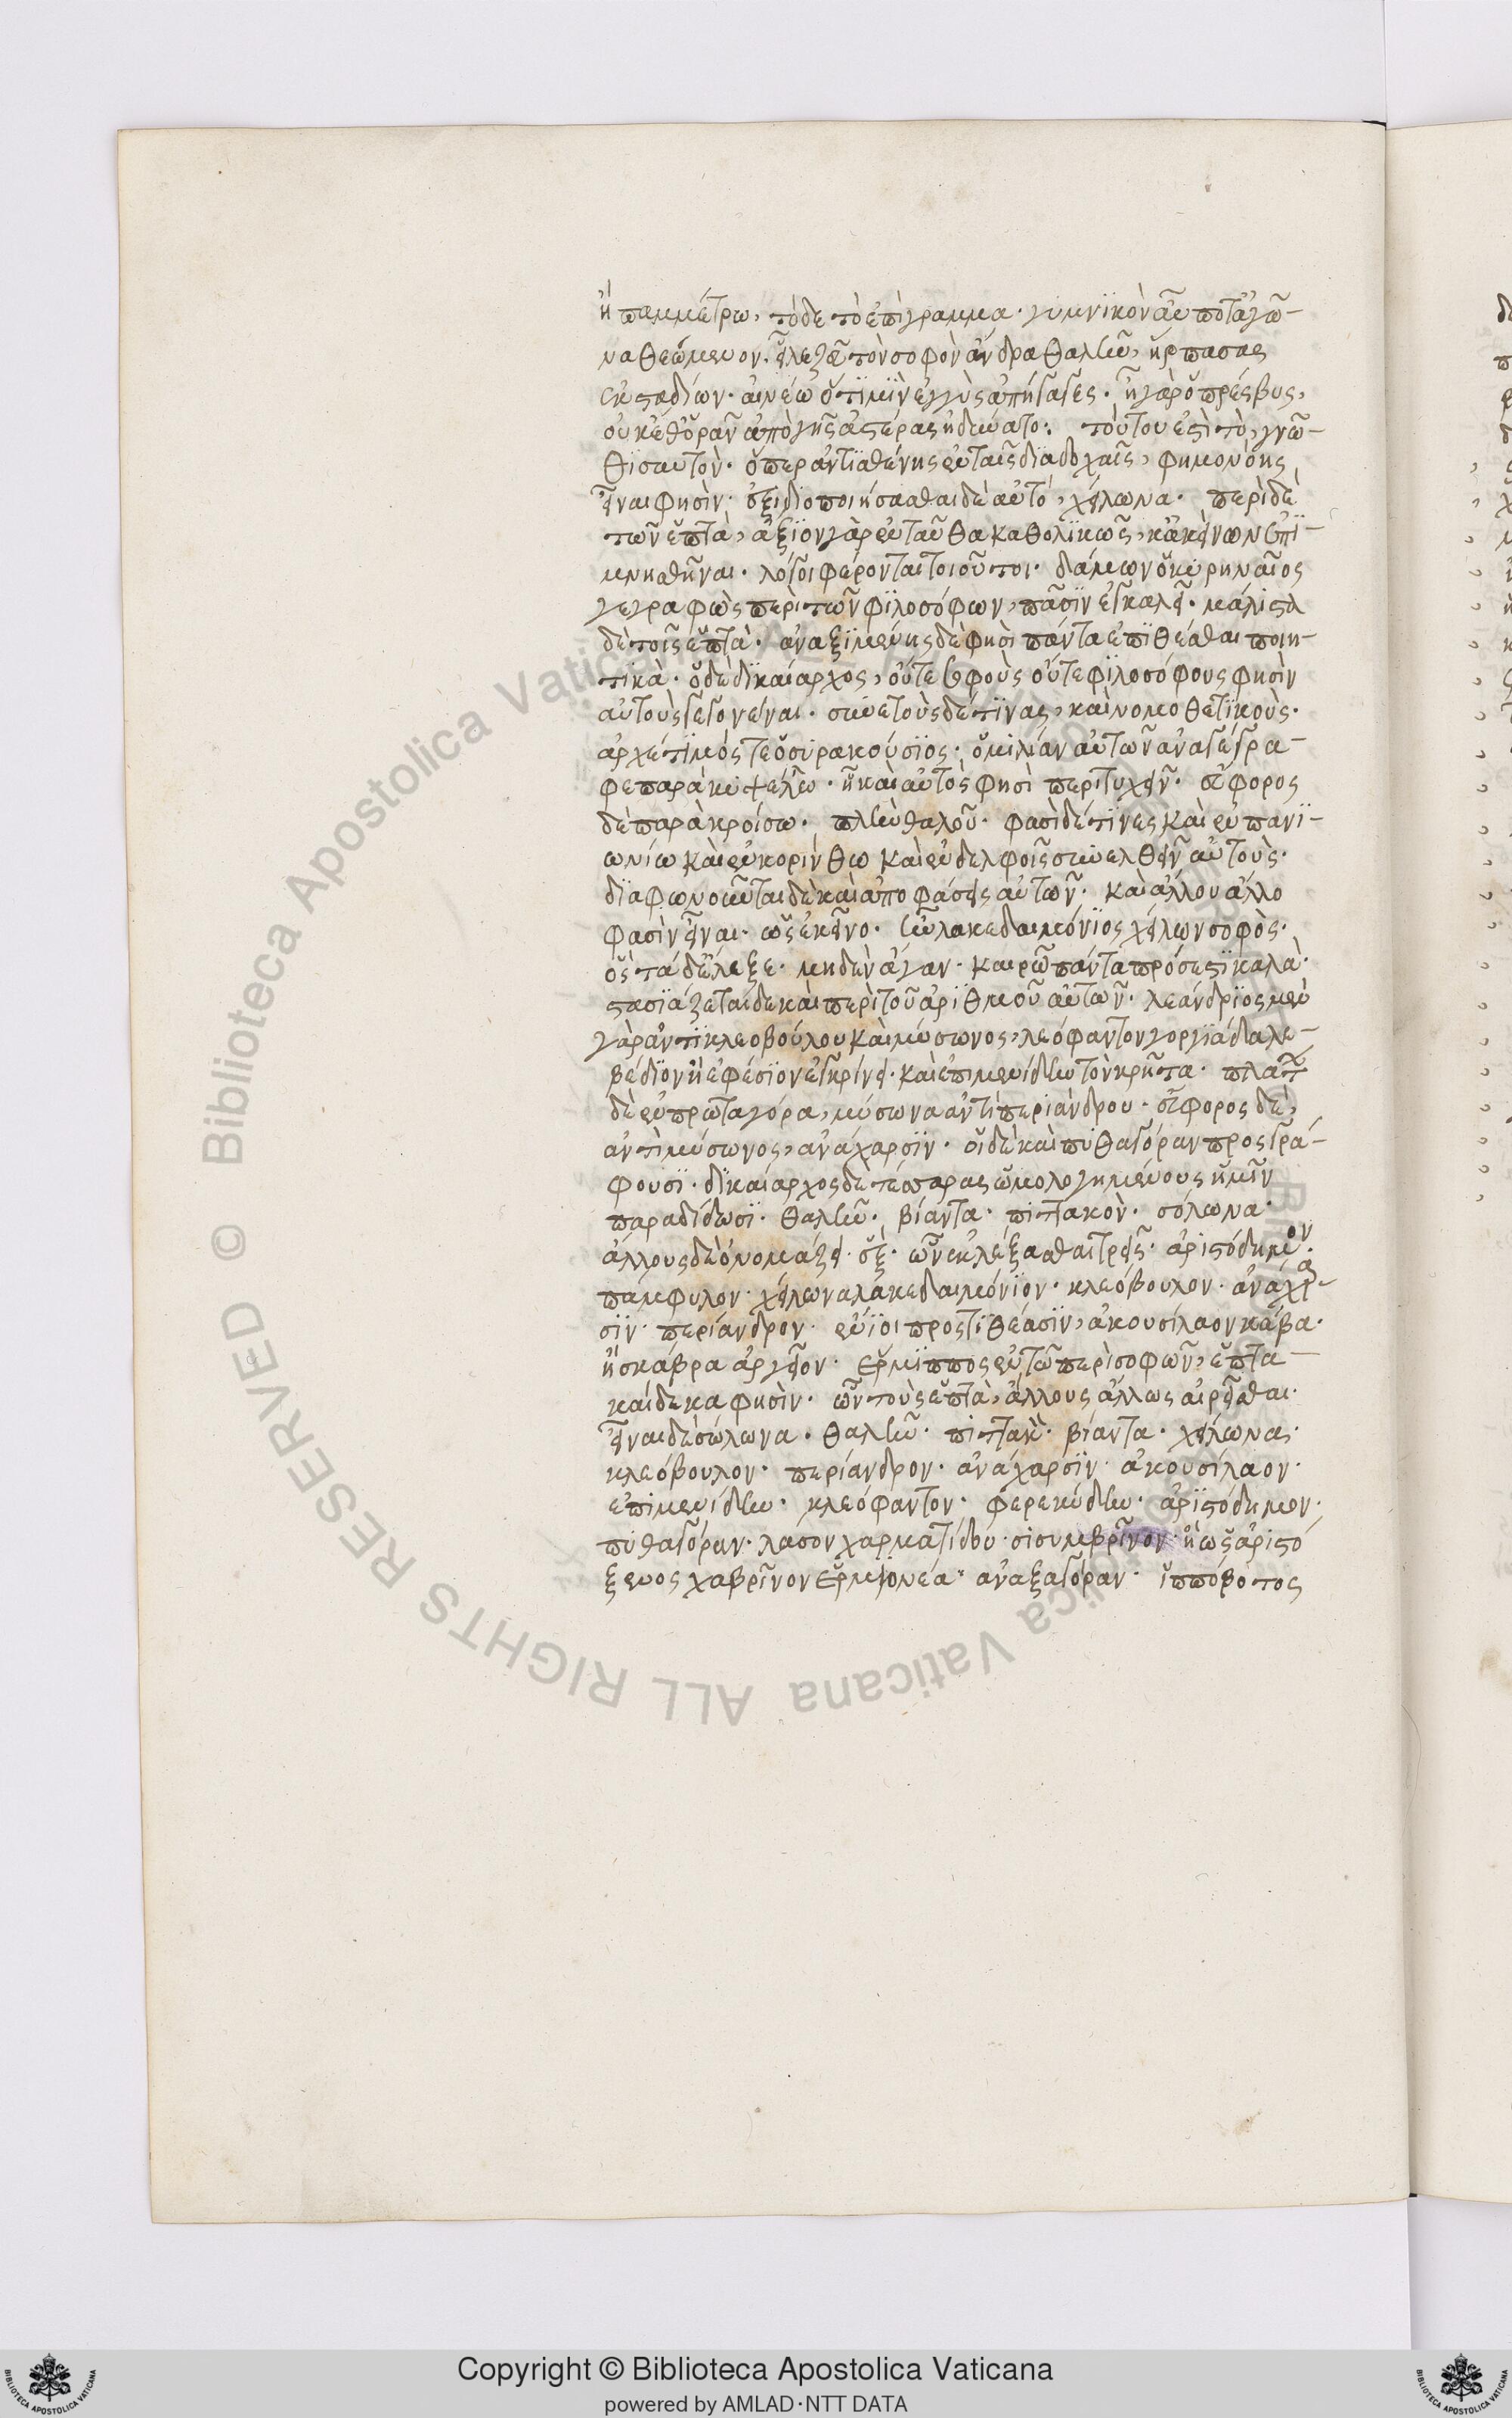 ἢ παμμέτρω, τόδε τὸ ἐπίγραμμα· γυμνϊκὸν αὖ ποτ' ἀγῶ-
να θεώμενον. ἠλεζεῦ τὸν σοφὸν ἄνδρα θαλῆν, ἥρπασας
ἐκ σταδίων· αἰνέω ὅττί μιν ἐγγὺς ἀπήγαγες. ἦ γὰρ ὁ πρέσβυς,
οὐκέθ' ὁρᾶν ἀπὸ γῆς ἀστέρας ἠδύνατο: τούτου ἐστὶ τὸ, γνῶ-
θι σαυτὸν. ὅπερ ἀντισθένης ἐν ταῖς διαδοχαῖς, φημονόης
εἶναι φησὶν· ἐξιδιοποιήσασθαι δὲ αὐτὸ, χείλωνα. περὶ δὲ
τῶν ἑπτὰ, ἄξιον γὰρ ἐνταῦθα καθολικῶς, κἀκείνων ἐπι-
μνησθῆναι. λόγοι φέρονται τοιοῦτοι. δάμων ὁ κυρηναῖος
γεγραφὼς περὶ τῶν φιλοσόφων, πᾶσιν ἐγκαλεῖ. μάλιστα
δὲ τοῖς ἑπτὰ. ἀναξιμένης δὲ φησὶ πάντα ἐπιθέσθαι ποιη-
τικὰ. ὁ δὲ δικαίαρχος, οὔτε σοφοὺς οὔτε φιλοσόφους φησὶν
αὐτοὺς γεγονέναι. συνετοὺς δέ τινας, καὶ νομοθετικοὺς.
ἀρχέτιμός τε ὁ συρακούσιος· ὁμιλίαν αὐτῶν ἀναγέγρα-
φε παρὰ κυψέλω. ᾗ καὶ αὐτός φησι περιτυχεῖν. ἔφορος
δὲ παρὰ κροίσω. πλὴν θαλοῦ. φασὶ δέ τινες καὶ ἐν πανι-
ωνίω καὶ ἐν κορίνθω καὶ ἐν δελφοῖς συνελθεῖν αὐτοὺς.
διαφωνοῦνται δὲ καὶ ἀποφάσεις αὐτῶν. καὶ ἄλλου ἄλλο
φασὶν εἶναι. ὡς ἐκεῖνο. ἦν λακεδαιμόνιος χείλων σοφὸς.
ὃς τάδ' ἔλεξε. μηδὲν ἄγαν. καιρῶ πάντα πρόσεστι καλὰ.
στασιάζεται δὲ καὶ περὶ τοῦ ἀριθμοῦ αὐτῶν. λεάνδριος μὲν
γὰρ ἀντὶ κλεοβούλου καὶ μύσωνος, λεόφαντον γοργιάδα λε-
βέδιον ἢ ἐφέσιον ἐγκρίνει. καὶ ἐπιμενίδην τὸν κρῆτα. πλάτ
δὲ ἐν πρωταγόρα, μύσωνα ἀντὶ περιάνδρου. ἔφορος δὲ,
ἀντὶ μύσωνος, ἀνάχαρσιν. οἱ δὲ καὶ πυθαγόραν προσγρά-
φουσι. δικαίαρχος δὲ τέσσαρας ὡμολογημένους ἡμῖν
παραδίδωσι. θαλῆν. βίαντα. πιττακὸν. σόλωνα.
ἄλλους δὲ ὀνομάζει. ἓξ. ὧν ἐκλέξασθαι τρεῖς. ἀριστόδημον.
πάμφυλον. χείλωνα λακεδαιμόνιον. κλεόβουλον. ἀνάχαρ-
σιν. περίανδρον. ἔνιοι προστιθέασιν, ἀκουσίλαον κάβα.
ἢ σκάβρα ἀργεῖον. ἕρμιππος ἐν τῶ περὶ σοφῶν, ἑπτα-
καίδεκα φησὶν. ὧν τοὺς ἑπτὰ, ἄλλους ἄλλως αἱρεῖσθαι.
εἶναι δὲ σόλωνα. θαλῆν. πιττακὸν. βίαντα. χείλωνα.
κλεόβουλον. περίανδρον. ἀνάχαρσιν. ἀκουσίλαον.
ἐπιμενίδην. κλεόφαντον. φερεκύδην. ἀριστόδημον.
πυθαγόραν. λασον χαρμαντίδου. σισυμβρῖνον. ἢ ὡς ἀριστό
ξενος χαβρῖνον ἑρμιονέα. ἀναξαγόραν. ἱππόβοτος
Copyright © Biblioteca Apostolica Vaticana
powered by AMLAD·NTT DATA